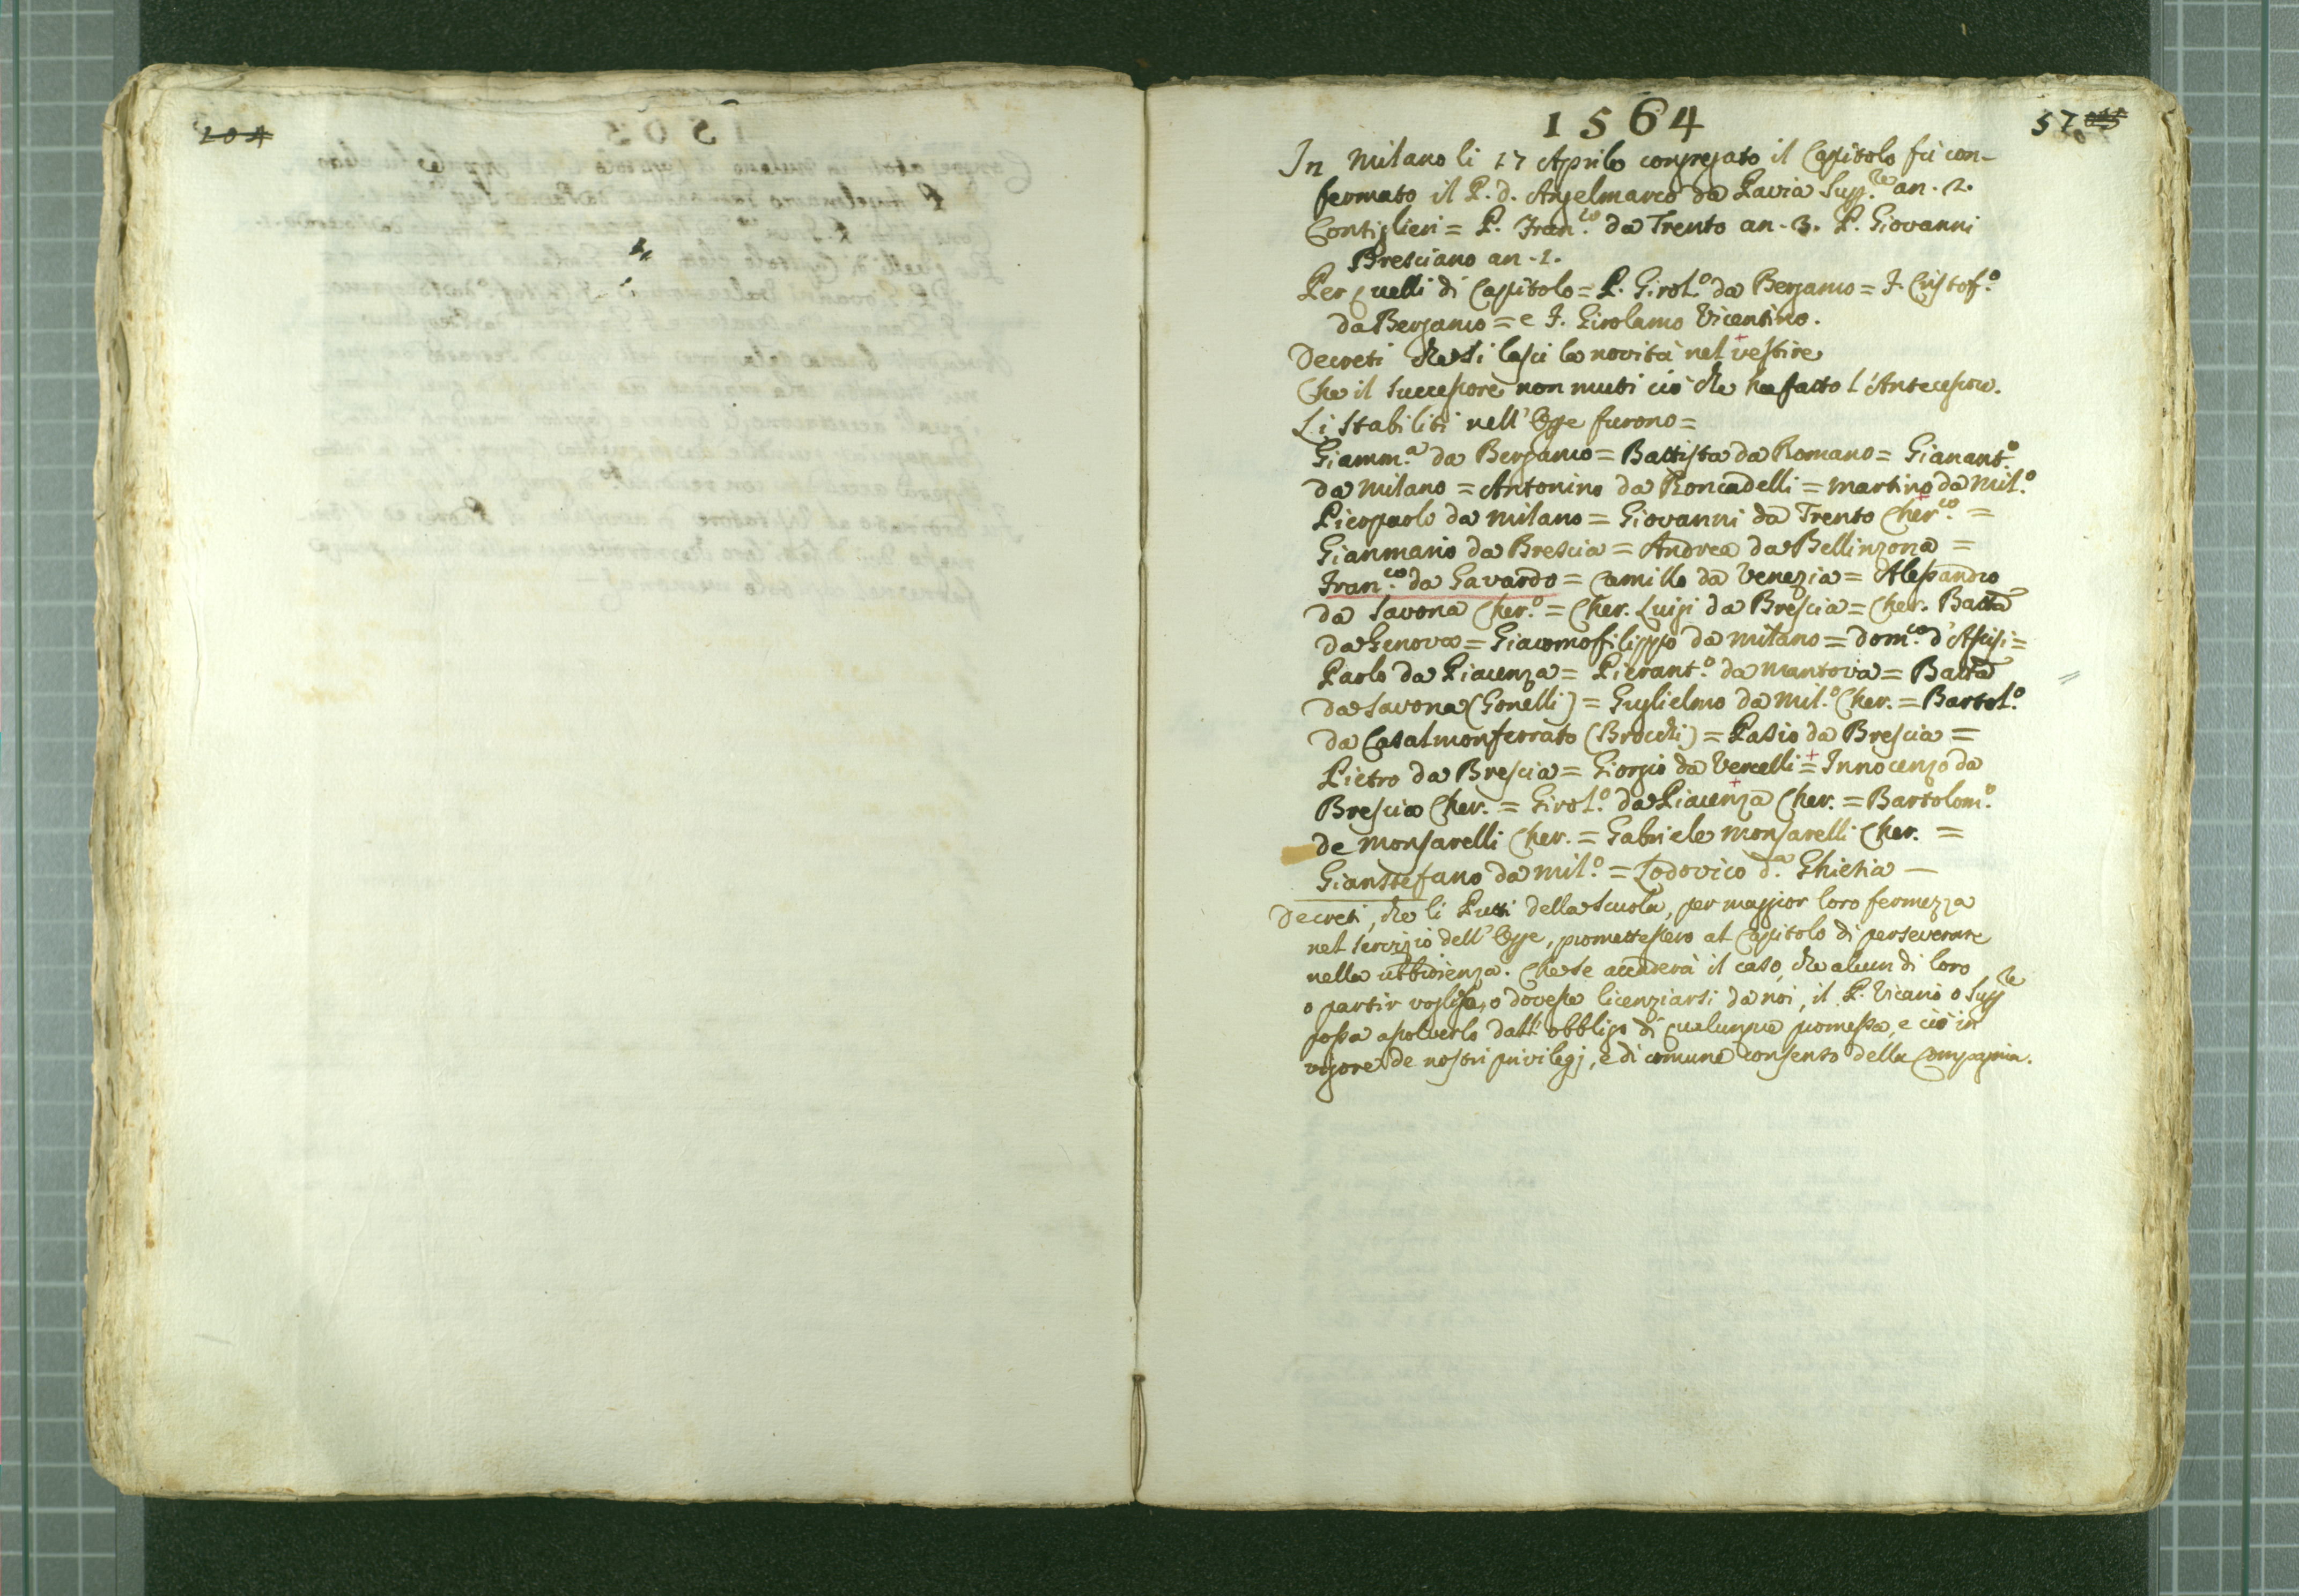 104
1564
57
In Milano li 17 Aprile congregato il Capitolo fù con-
fermato il P. d. Angelmarco da Pavia Supp.re an. 2.
Consiglieri = P. Fran.co da Trento an. 3. P. Giovanni
Bresciano an. 1.
Per quelli di Capitolo = P. Girol.o da Bergamo = F. Cristof.o
da Bergamo = e F. Girolamo Vicentino.
Decreti che si lasci le novità nel vestire
Che il Successore non muti ciò che ha fatto l'Antecessore.
Li stabiliti nell'Opre furono =
Giamm.a da Bergamo = Battista da Romano = Gianant.o
da Milano = Antonino da Roncadelli = Martino da Mil.o
Picopaolo da Milano = Giovanni da Trento Cher.co =
Gianmario da Brescia = Andrea da Bellinzona =
Fran.co da Gavardo = Camillo da Venezia = Alessandro
da Savona Cher.o = Cher. Luigi da Brescia = Cher. Batta
da Genova = Giacomofilippo da Milano = Dom.co d'Assisi =
Paolo da Piacenza = Pierant.o da Mantova = Batta
da Savona (Gonelli) = Guglielmo da Mil.o Cher. = Bartol.o
da Casalmonferrato (Brocchi) = Pasio da Brescia =
Pietro da Brescia = Giorgio da Vercelli = Innocenzo da
Brescia Cher. = Girol.o da Piacenza Cher. = Bartolom.o
de Monsarelli Cher. = Gabriele Monsarelli Cher. =
Gianstefano da Mil.o = Lodovico d.a Ghieria —
Decreti, che li Putti della Scuola, per maggior loro fermezza
nel servizio dell'Opre, promettessero al Capitolo di perseverare
nella ubbidienza. Che se accaderà il caso, che alcun di loro
o partir voglia, o dovesse licenziarsi da noi, il P. Vicario o Supp.re
possa assolverlo dall'obbligo di qualunque promessa, e ciò in
vigore de nostri privilegj, e di comune consenso della Compagnia.